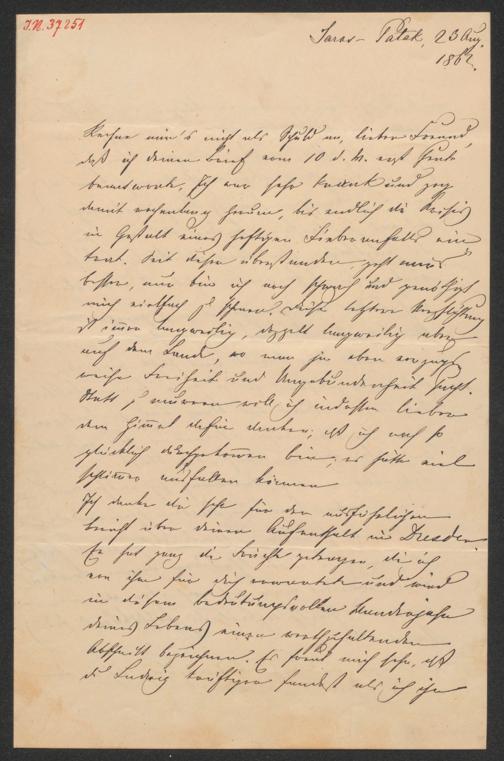 J.N. 37251
Saros-Patak, 23 Aug.
1862.
Rechne mir's nicht als Schuld an, lieber Freund,
daß ich deinen Brief vom 10 d. M. erst heute
beantworte. Ich war sehr krank und zog
damit wochenlang herum, bis endlich die Krisis
in Gestalt eines heftigen Fieberanfalls ein
trat. Seit dieser überstanden geht mir's
besser, nur bin ich noch schwach und genöthigt
mich vielfach zu schonen. Diese letztere
ist immer langweilig, doppelt langweilig aber
auf dem Lande, wo man ja eben vorzugs
weise Freiheit und Ungebundenheit sucht.
Statt zu murren will ich indessen lieber
dem Himmel dafür danken, daß ich noch so
glücklich durchgekommen bin; es hätte viel
schlimmer ausfallen können.
Ich danke dir sehr für den ausführlichen
Bericht über deinen Aufenthalt in Dresden.
Er hat ganz die Früchte getragen, die ich
von ihm für dich erwartete und wird
in diesem bedeutungsvollen Wanderjahr
deines Lebens einen werthzuhaltenden
Abschnitt bezeichnen. Es freut mich sehr, daß
du Ludwig kräftiger fandest als ich ihn